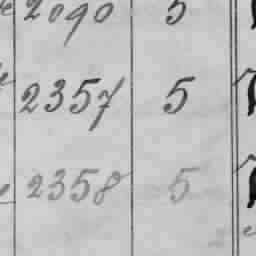 2090 5
2357 5
2358 5